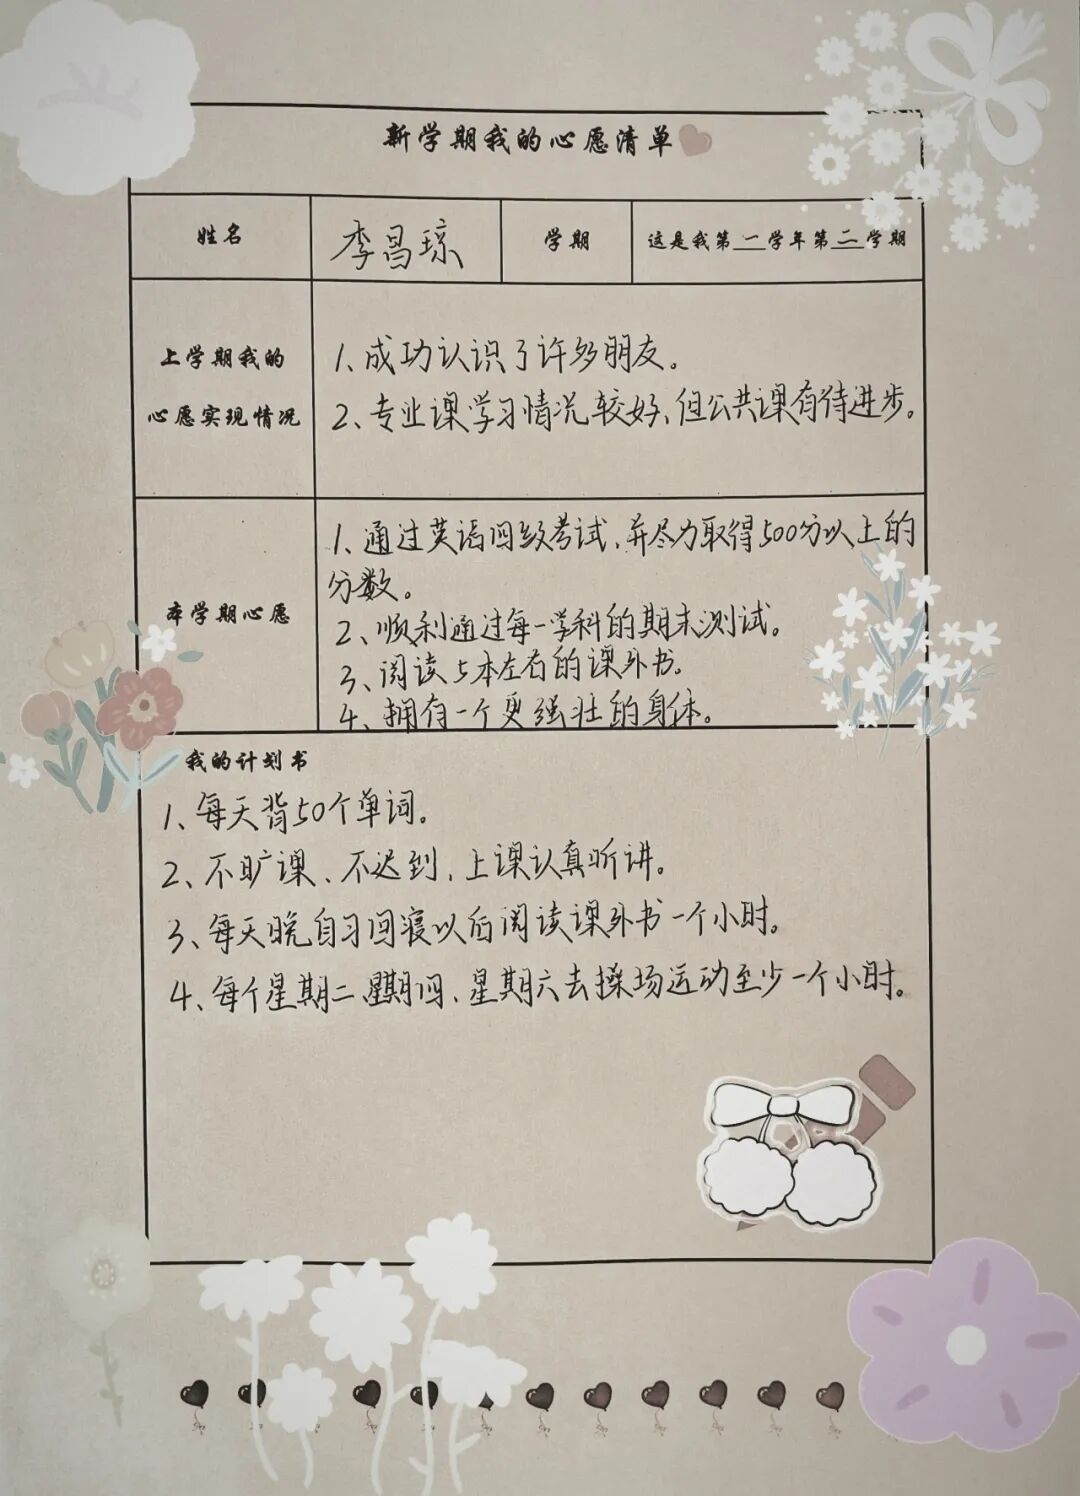 新学期我的心愿清单
姓名 李昌琼 学期 这是我第一学年第二学期
上学期我的
心愿实现情况
1、成功认识了许多朋友。
2、专业课学习情况较好，但公共课有待进步。
本学期心愿
1、通过英语四级考试，并尽力取得500分以上的
分数。
2、顺利通过每一学科的期末测试。
3、阅读5本左右的课外书。
4、拥有一个更强壮的身体。
我的计划书
1、每天背50个单词。
2、不旷课、不迟到，上课认真听讲。
3、每天晚自习回寝以后阅读课外书一个小时。
4、每个星期二、星期四、星期六去操场运动至少一个小时。